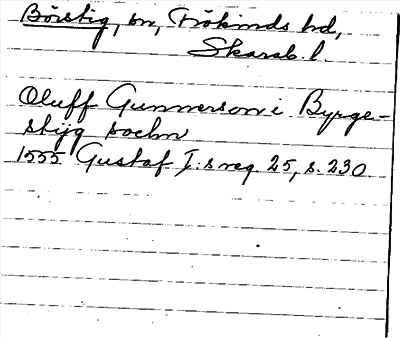 Börstig, sn, Frökinds hd,
Skarab. l.
Oluff Gunnerson i Byrge-
stijg sochn
1555 Gustaf I:s reg. 25, s. 230